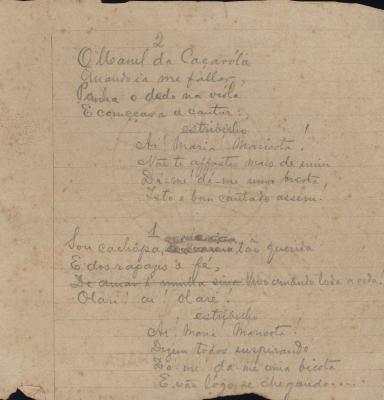 2
O Manel da Caçaróla
Quando ia me fallar,
Punha o dedo na viola
E começava a cantar:
estribilho
Ai! Maria Maricota!
Não te affastes mais de mim
Dá-me! dá-me uma bicota!
Isto é bom cantado assim!
1
Sou cachópa, tão querida
E dos rapazes a fé,
De amar é minha sina Vivo amando toda a vida.
Olari! oi! olaré.
estribilho
Ai! Maria! Maricota!
Dizem todos suspirando
Dá-me dá-me uma bicota
E vão lógo se chegando....